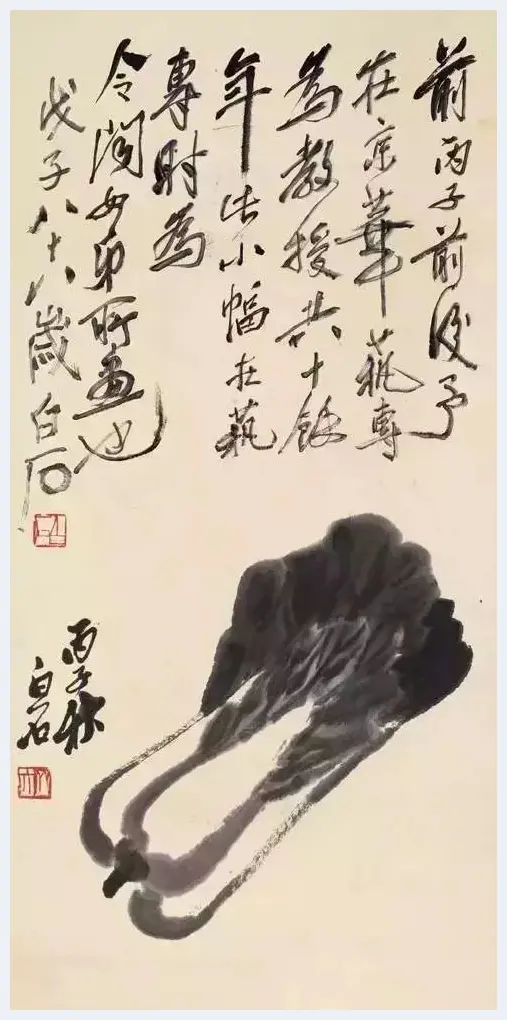 前丙子前後予
在京華藝專
為教授共十餘
年此小幅在藝
專時為
令閨女弟所畫也
戊子八十八歲白石
丙子秋
白石